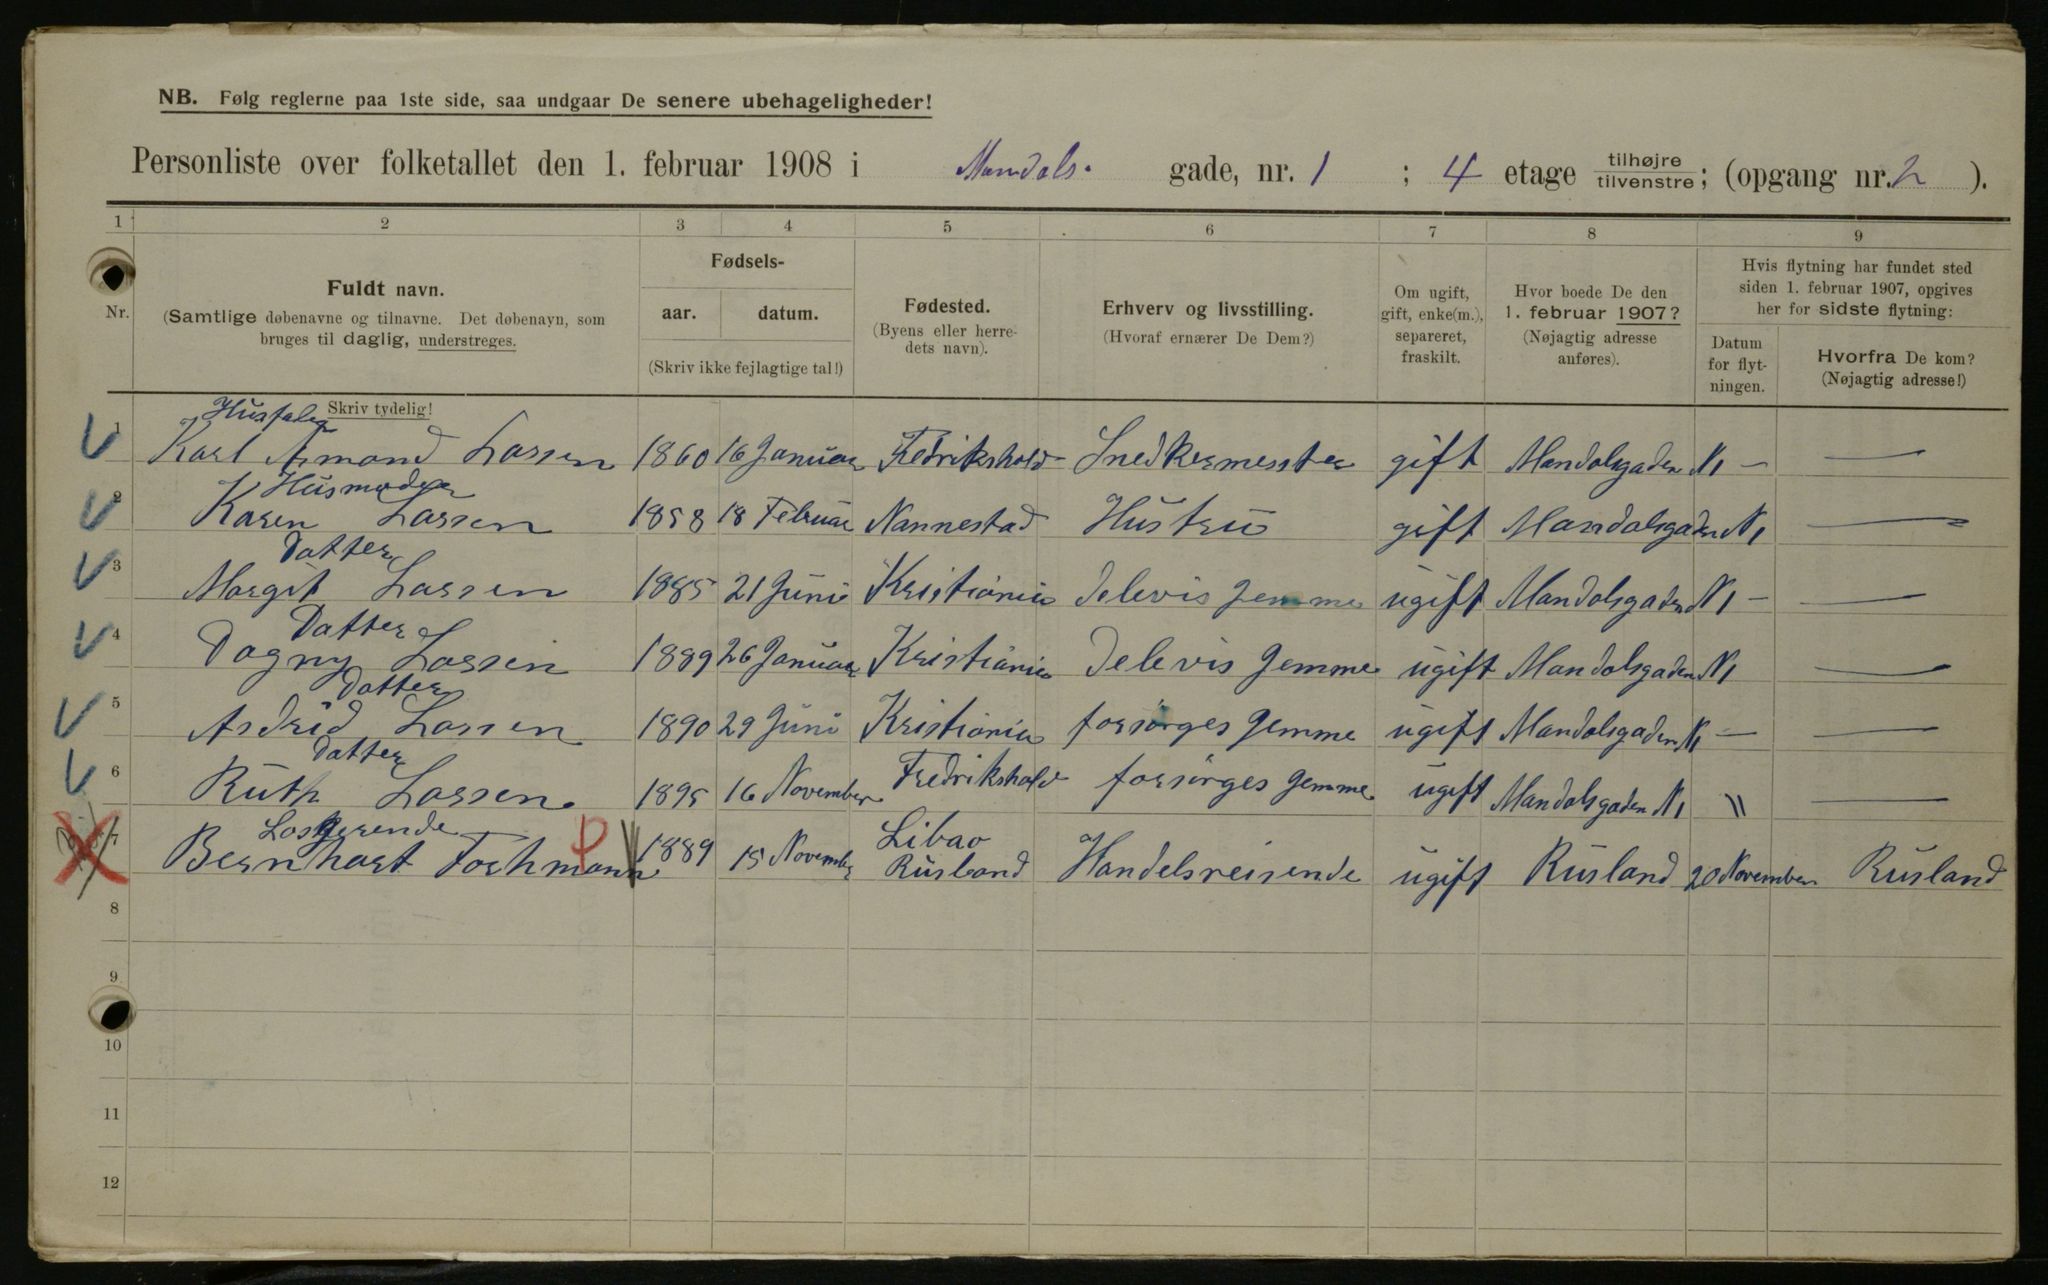 NB. Følg reglerne paa 1ste side, saa undgaar De senere ubehageligheder!
Personliste over folketallet den 1. februar 1908 i Mandals. gade, nr. 1 ; 4 etage tilhøjre tilvenstre; (opgang nr. 2 ).
1 2 3 4 5 6 7 8 9
Nr. Fuldt navn. (Samtlige døbenavne og tilnavne. Det døbenavn, som bruges til daglig, understreges.
Skriv tydelig!
Fødsels- aar. datum. (Skriv ikke fejlagtige tal!)
Fødested. (Byens eller herredets navn).
Erhverv og livsstilling. (Hvoraf ernærer De Dem?)
Om ugift, gift, enke(m.), separeret, fraskilt.
Hvor boede De den 1. februar 1907? (Nøjagtig adresse anføres).
Hvis flytning har fundet sted siden 1. februar 1907, opgives her for sidste flytning:
Datum for flytningen.
Hvorfra De kom? (Nøjagtig adresse!)
Husfader
1 Karl Armand Larsen 1860 16 Januar Fredrikshald Snedkermesster gift Mandalsgaden N1 — —
Husmoder
2 Karen Larsen 1858 18 Februar Nannestad Hustru gift Mandalsgaden N1 —
Datter
3 Margit Larsen 1885 21 Juni Kristiania delevis Jemme ugift Mandalsgaden N1 — —
Datter
4 Dagny Larsen 1889 26 Januar Kristiania delevis Jemme ugift Mandalsgaden N1 —
Datter
5 Astrid Larsen 1890 29 Juni Kristiania forsørges Jemme ugift Mandalsgaden N1 — —
Datter
6 Ruth Larsen. 1895 16 November Fredrikshald forsørges Jemme ugift Mandalsgaden N1 " —
Losjerende
7 Bernhart Forhmann 1889 15 November Libao Rusland Handelsreisende ugift Rusland 20 November Rusland
8
9
10
11
12